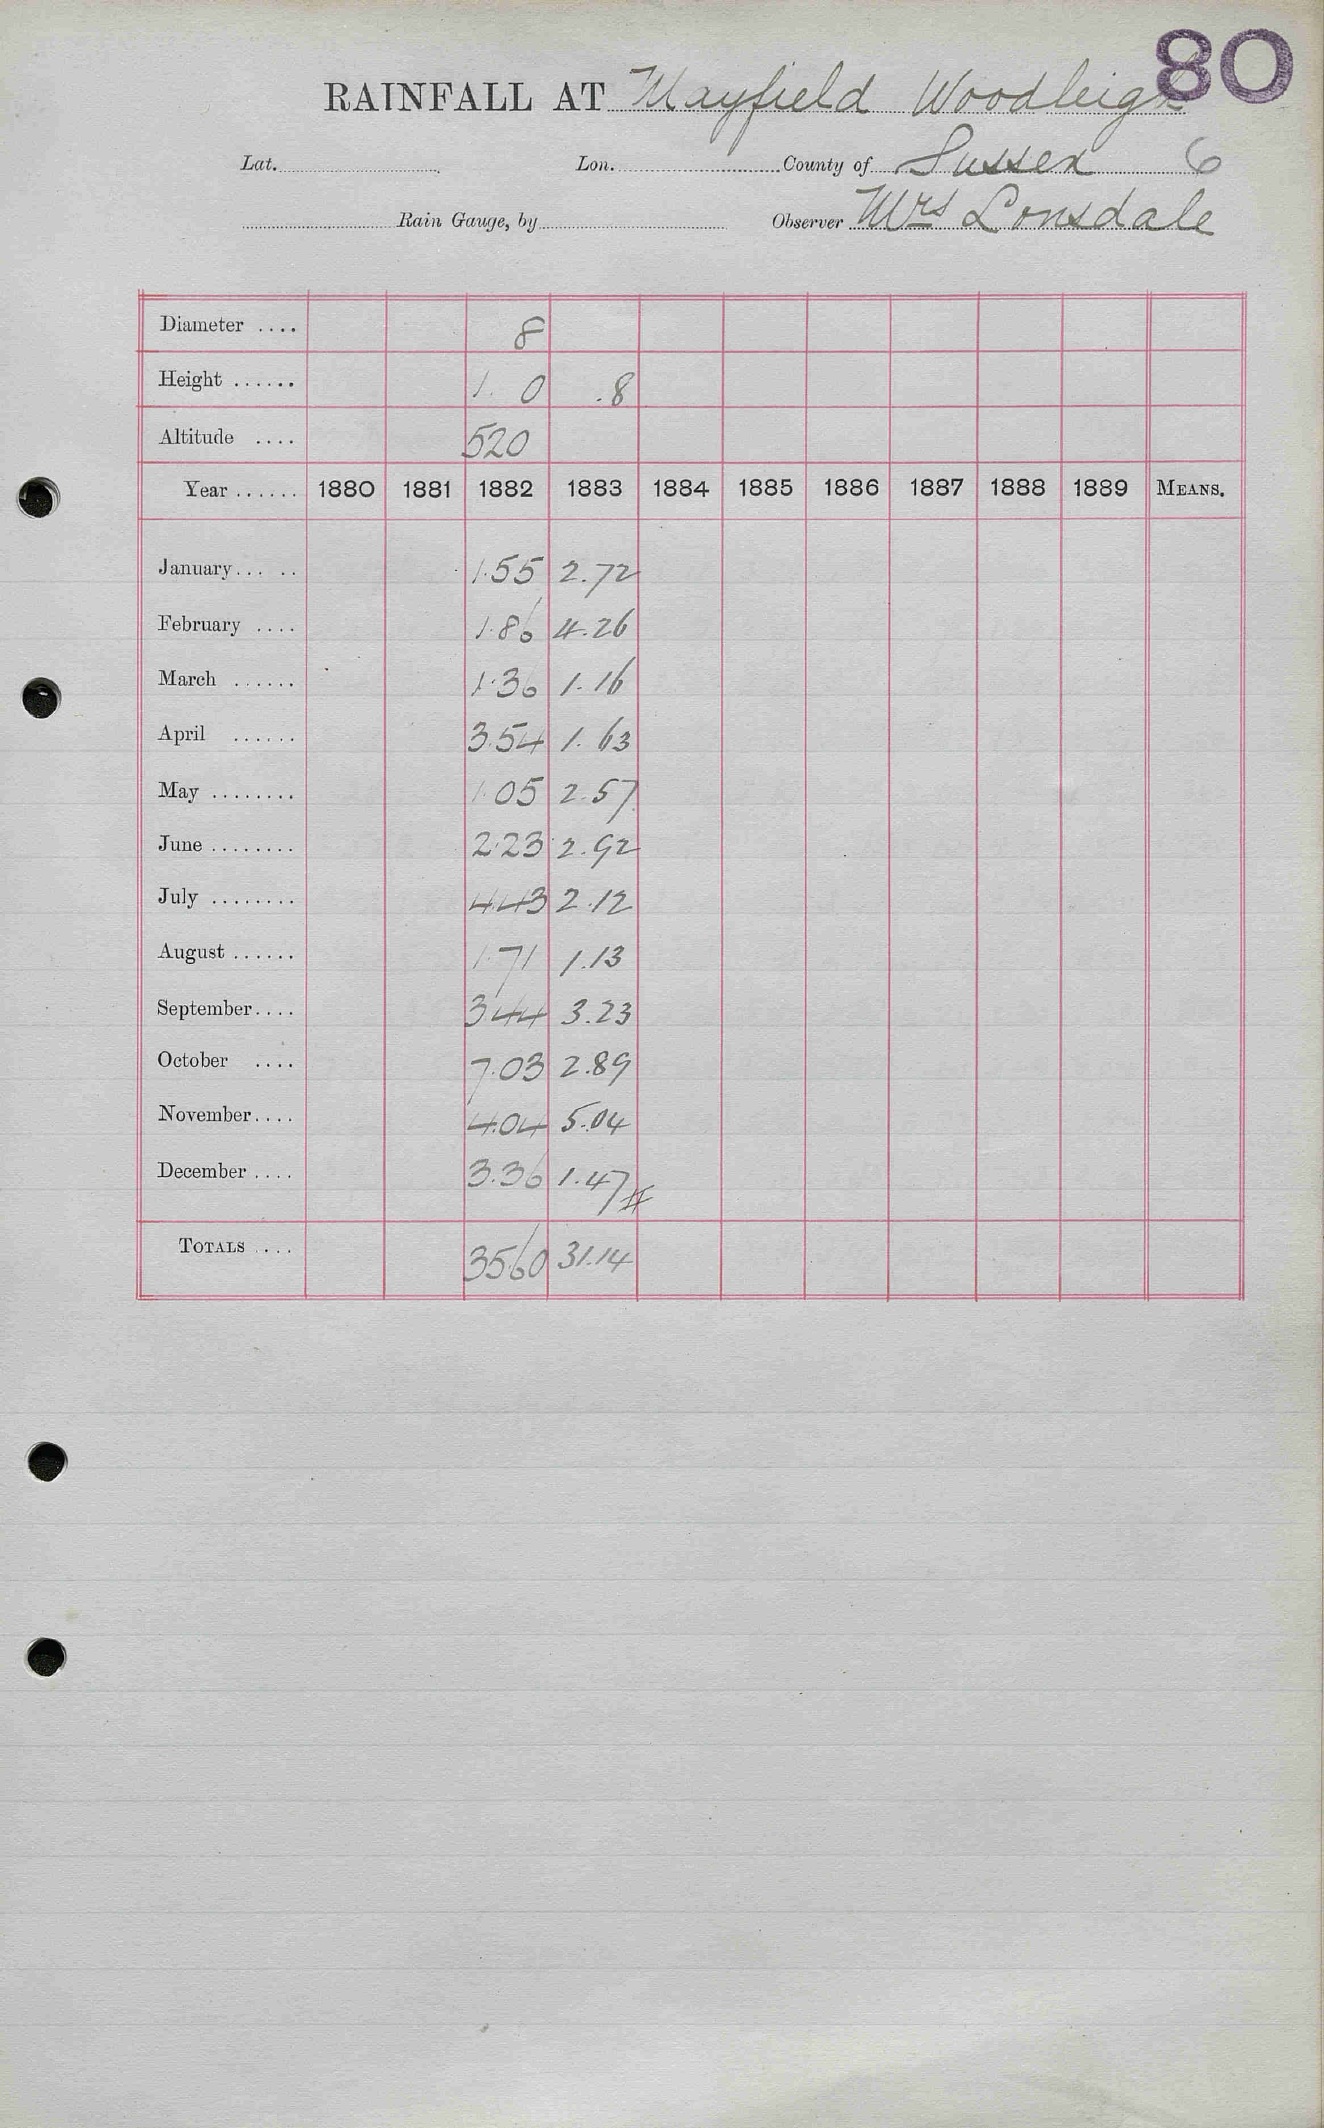 80
RAINFALL AT Mayfield Woodleigh
Lat. Lon. County of Sussex 6
Rain Gauge, by Observer Mrs Lonsdale
Diameter .... 8
Height ...... 1. 0 .8
Altitude .... 520
Year ...... 1880 1881 1882 1883 1884 1885 1886 1887 1888 1889 MEANS.
January ... .. 1.55 2.72
February .... 1.86 4.26
March ...... 1.36 1.16
April ...... 3.54 1.63
May ........ 1.05 2.57
June ........ 2.23 2.92
July ........ 4.43 2.12
August ...... 1.71 1.13
September .... 3.44 3.23
October .... 7.03 2.89
November .... 4.04 5.04
December .... 3.36 1.47
TOTALS .... 35.60 31.14